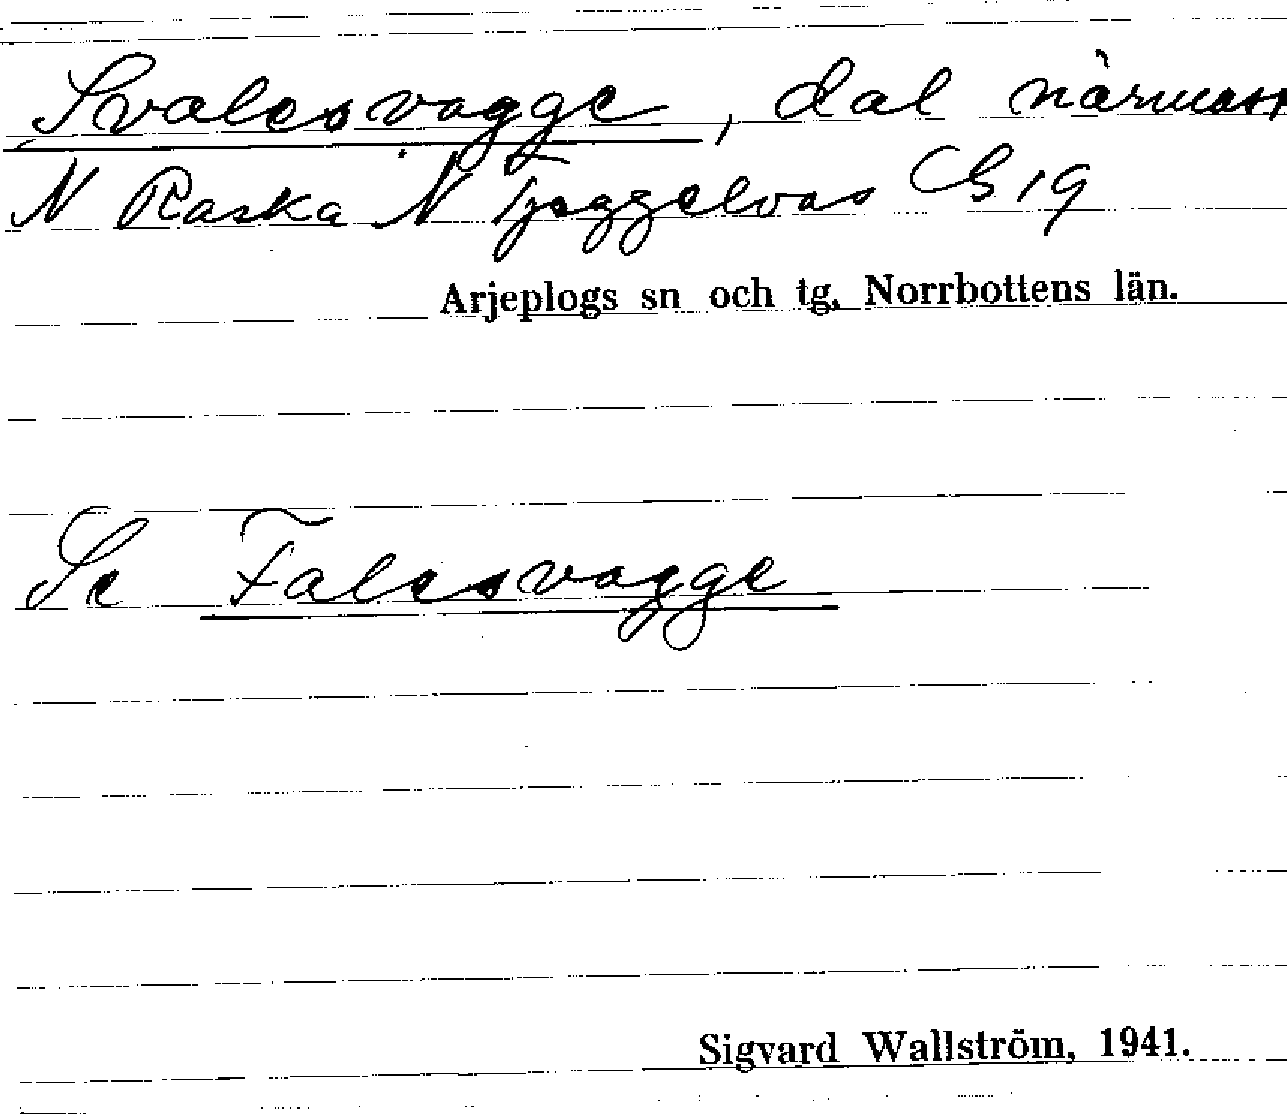 Svalesvagge, dal närmast
N Raska N Tjeggelvas G 19
Arjeplogs sn och tg, Norrbottens län.
Se Falesvagge
Sigvard Wallström, 1941.